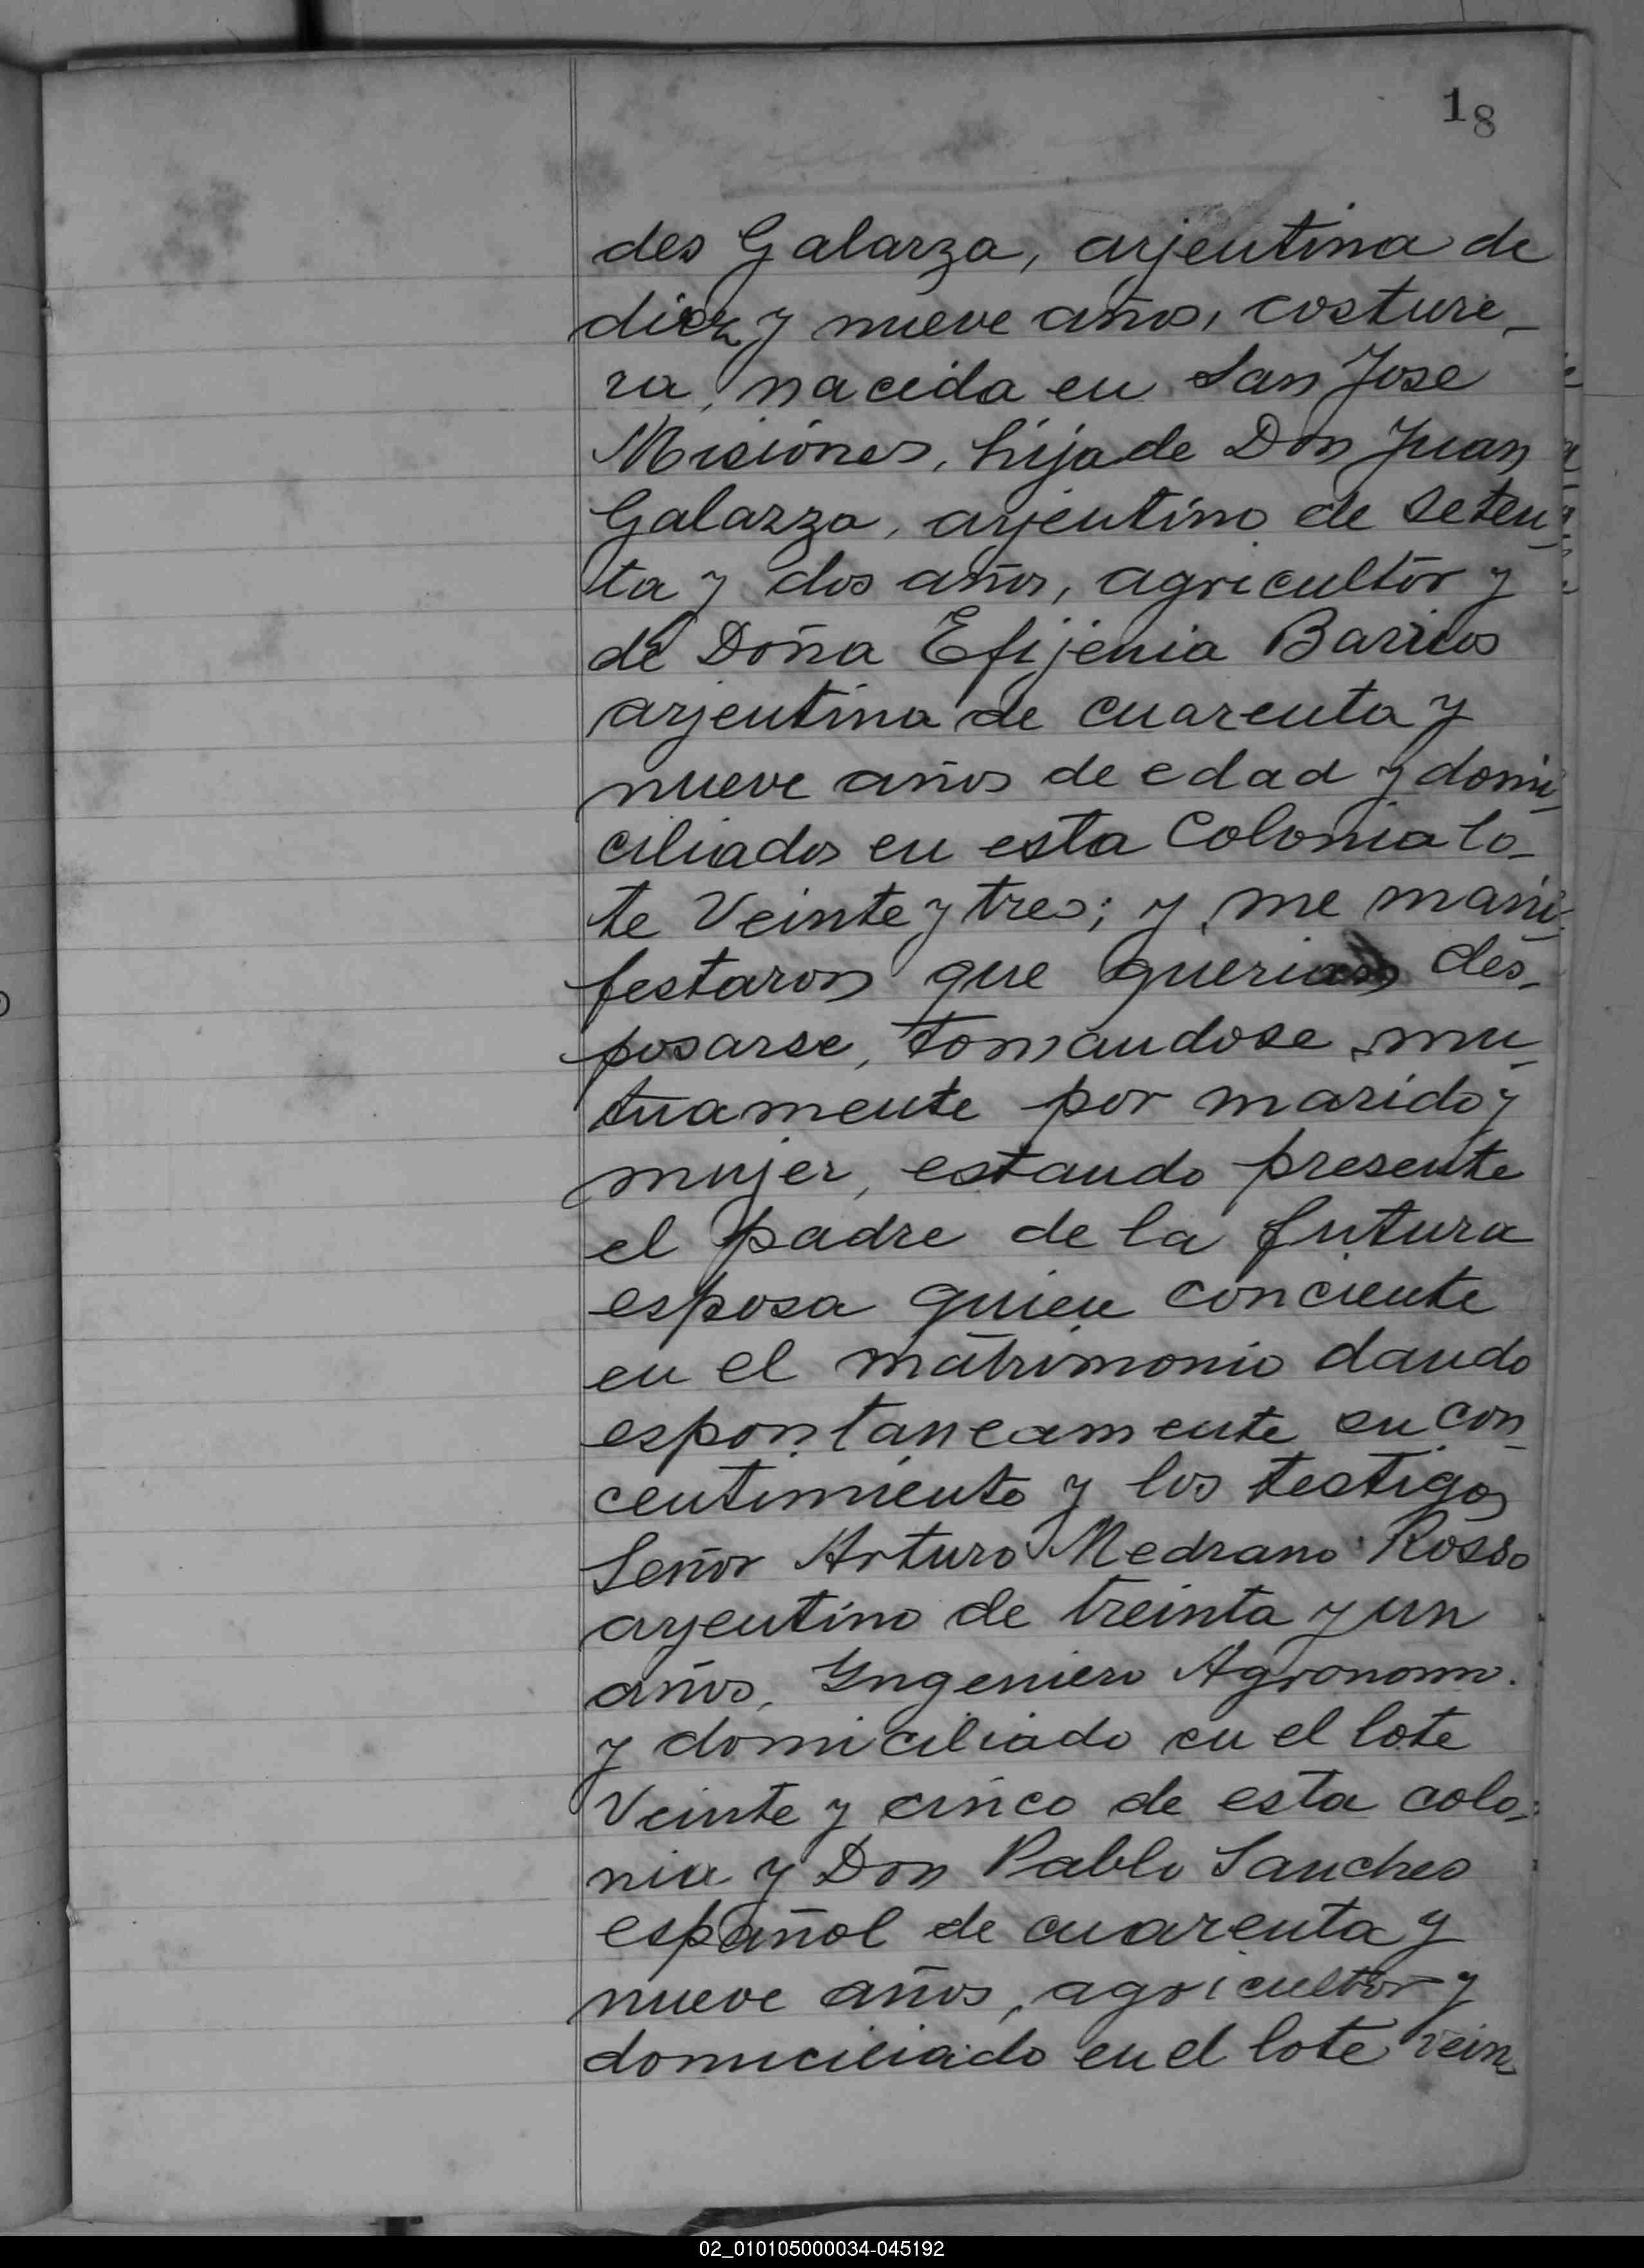 18
des Galarza, arjentina de
diez y nueve años, costure-
ra, nacida en San Jose
Misiones, hija de Don Juan
Galarza, arjentino de seten-
ta y dos años, agricultor y
de Doña Efijenia Barrios
arjentina de cuarenta y
nueve años de edad y domi-
ciliados en esta Colonia lo-
te Veinte y tres; y me mani-
festaron que querian des-
posarse, tomandose mu-
tuamente por marido y
mujer, estando presente
el padre de la futura
esposa quien conciente
en el matrimonio dando
espontaneamente su con-
centimiento y los testigos
Señor Arturo Medrano Rosso
arjentino de treinta y un
años, Yngeniero Agronomo.
y domiciliado en el lote
Veinte y cinco de esta colo-
nia y Don Pablo Sanches
español de cuarenta y
nueve años, agricultor y
domiciliado en el lote vein
02_010105000034-045192